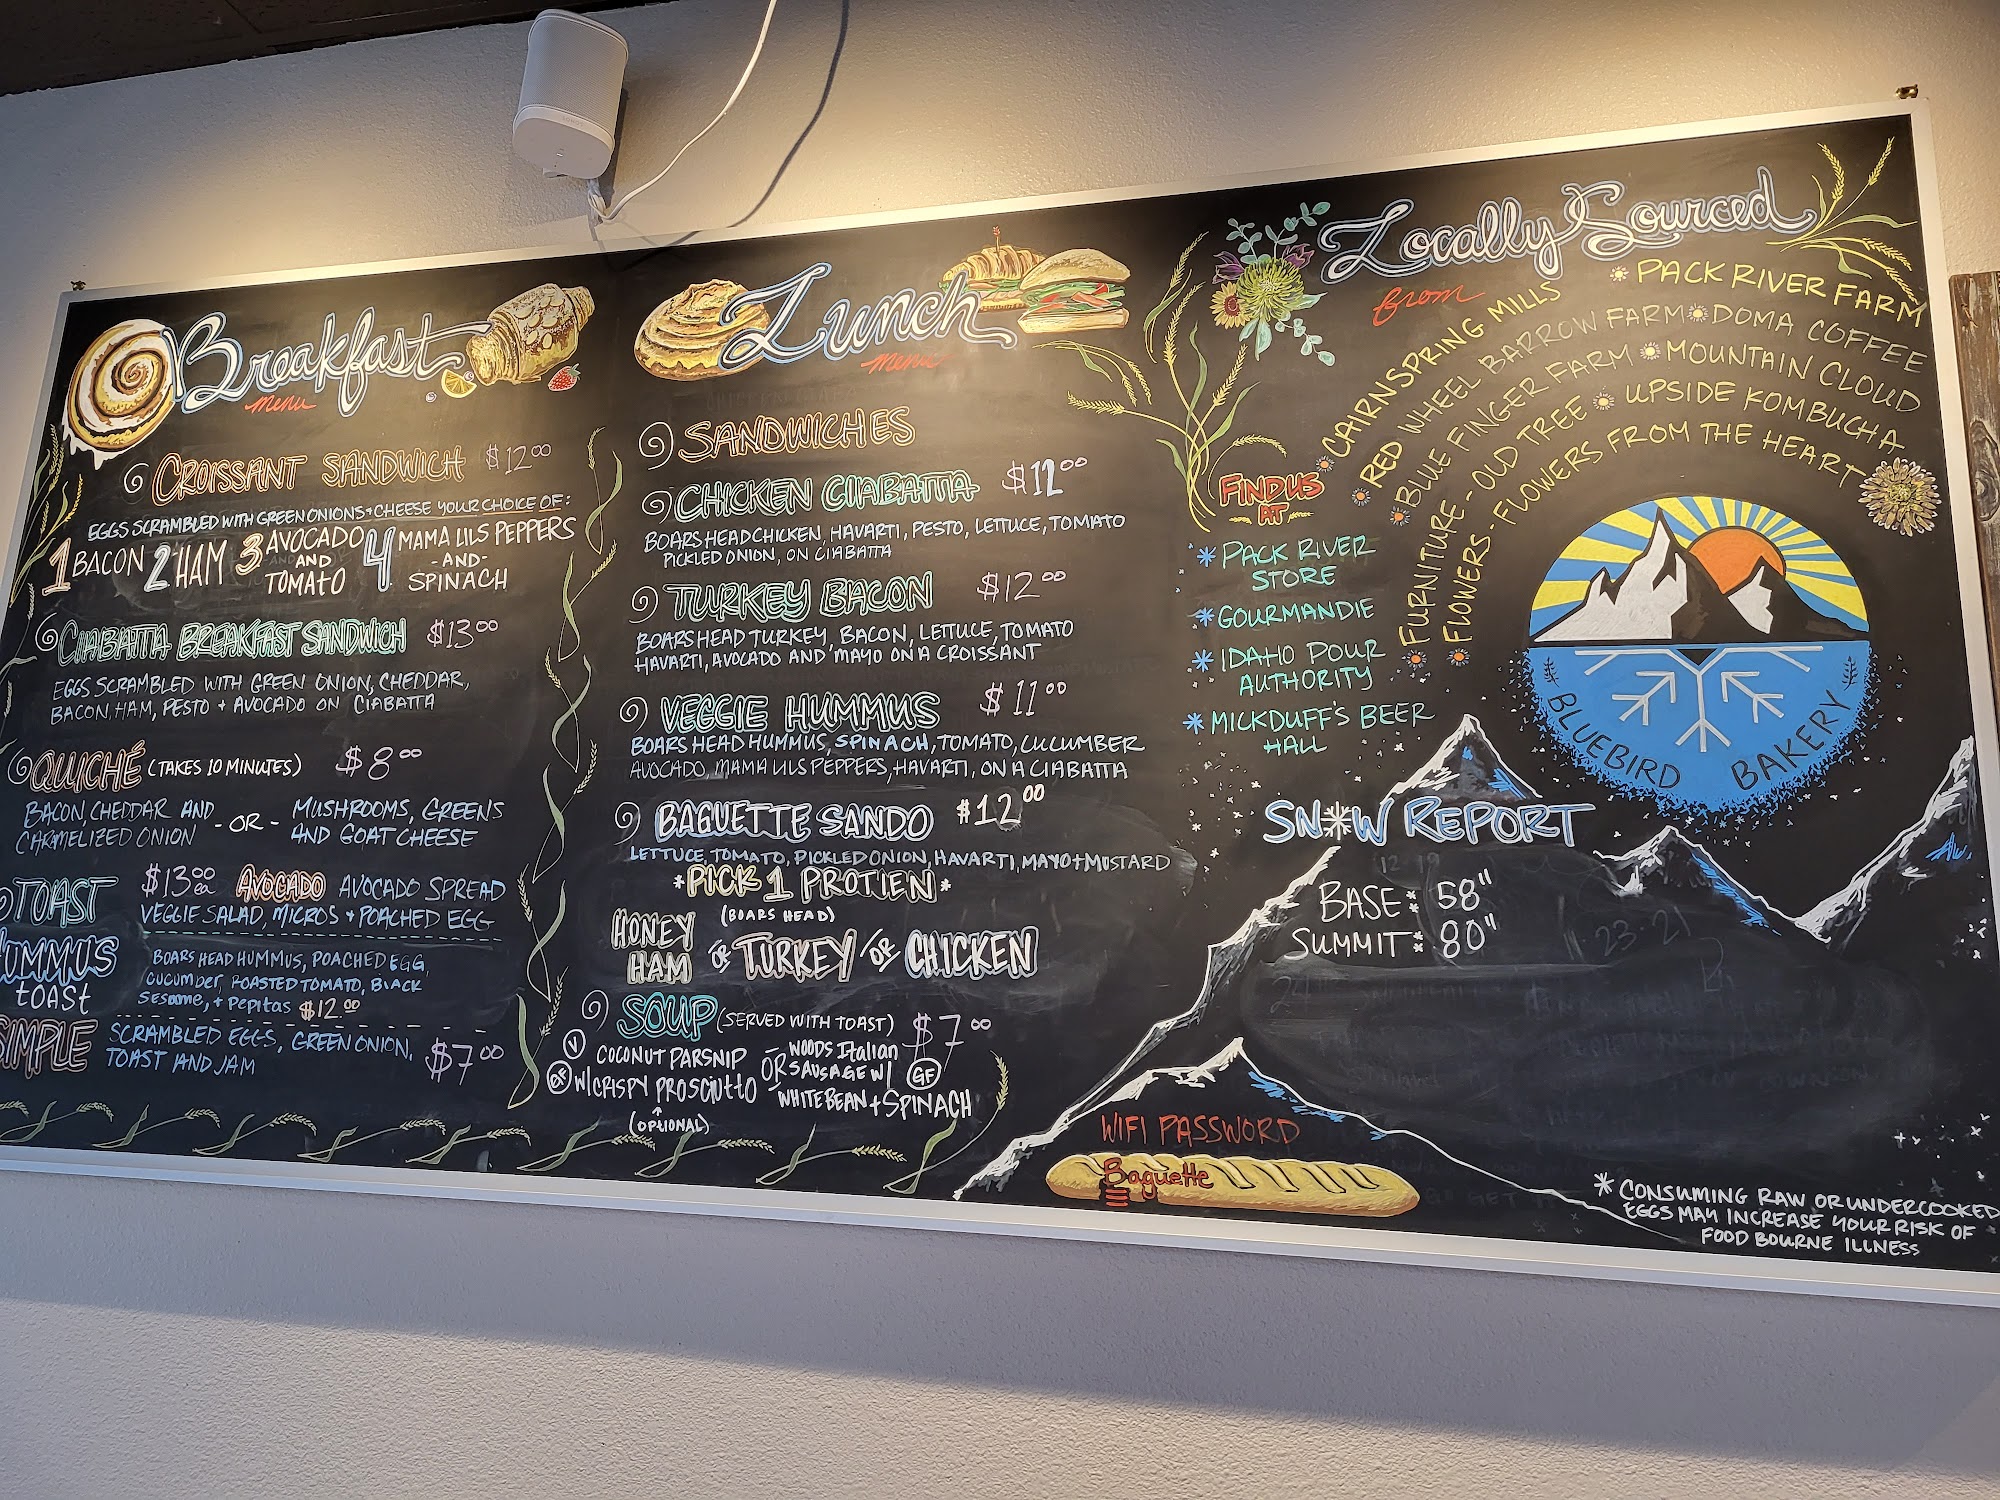 SONOS
Breakfast
menu
CROISSANT SANDWICH $12.00
EGGS SCRAMBLED WITH GREEN ONIONS + CHEESE YOUR CHOICE OF:
1 BACON 2 HAM 3 AVOCADO AND TOMATO 4 MAMA LILS PEPPERS -AND- SPINACH
CIABATTA BREAKFAST SANDWICH $13.00
EGGS SCRAMBLED WITH GREEN ONION, CHEDDAR,
BACON, HAM, PESTO + AVOCADO ON CIABATTA
QUICHÉ (TAKES 10 MINUTES) $8.00
BACON, CHEDDAR AND
CARMELIZED ONION
- OR -
MUSHROOMS, GREENS
AND GOAT CHEESE
TOAST $13.00 ea AVOCADO AVOCADO SPREAD
VEGGIE SALAD, MICROS + POACHED EGG
HUMMUS
toast
BOARS HEAD HUMMUS, POACHED EGG,
CUCUMBER, ROASTED TOMATO, BLACK
SESAME, + PEPITAS $12.00
SIMPLE SCRAMBLED EGGS, GREEN ONION,
TOAST AND JAM $7.00
Lunch
menu
SANDWICHES
CHICKEN CIABATTA $12.00
BOARS HEAD CHICKEN, HAVARTI, PESTO, LETTUCE, TOMATO
PICKLED ONION, ON CIABATTA
TURKEY BACON $12.00
BOARS HEAD TURKEY, BACON, LETTUCE, TOMATO
HAVARTI, AVOCADO AND MAYO ON A CROISSANT
VEGGIE HUMMUS $11.00
BOARS HEAD HUMMUS, SPINACH, TOMATO, CUCUMBER
AVOCADO, MAMA LILS PEPPERS, HAVARTI, ON A CIABATTA
BAGUETTE SANDO $12.00
LETTUCE, TOMATO, PICKLED ONION, HAVARTI, MAYO + MUSTARD
*PICK 1 PROTIEN*
(BOARS HEAD)
HONEY HAM OR TURKEY OR CHICKEN
SOUP (SERVED WITH TOAST) $7.00
V
COCONUT PARSNIP
GF W/CRISPY PROSCIUTTO
(OPTIONAL)
OR
WOODS Italian
SAUSAGE W/ GF
WHITE BEAN + SPINACH
Locally Sourced
from
PACK RIVER FARM
CAIRNSPRING MILLS
RED WHEEL BARROW FARM DOMA COFFEE
BLUE FINGER FARM MOUNTAIN CLOUD
FURNITURE - OLD TREE UPSIDE KOMBUCHA
FLOWERS - FLOWERS FROM THE HEART
FIND US
AT
* PACK RIVER
STORE
* GOURMANDIE
* IDAHO POUR
AUTHORITY
* MICKDUFF'S BEER
HALL
BLUEBIRD BAKERY
SNOW REPORT
BASE: 58"
SUMMIT: 80"
WIFI PASSWORD
Baguette
* CONSUMING RAW OR UNDERCOOKED
EGGS MAY INCREASE YOUR RISK OF
FOOD BOURNE ILLNESS